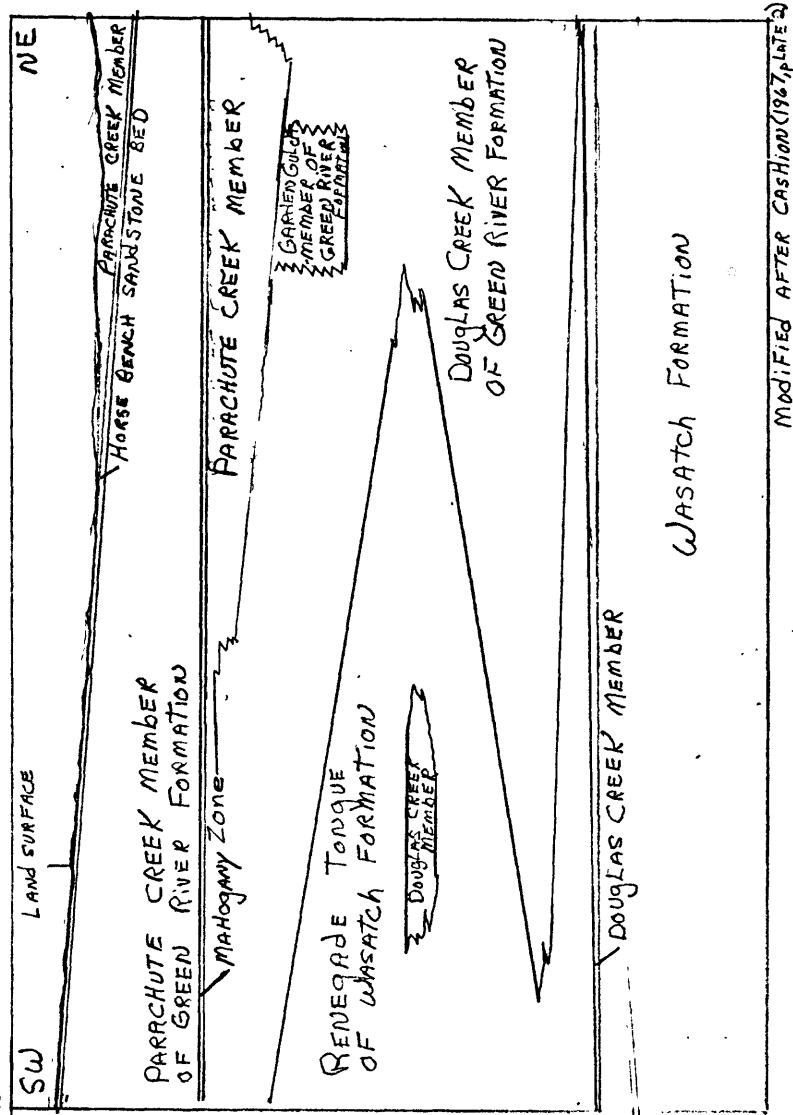 SW
LAND SURFACE
NE
PARACHUTE CREEK MEMBER
HORSE BENCH SANDSTONE BED
PARACHUTE CREEK MEMBER
OF GREEN RIVER FORMATION
MAHOGANY ZONE
PARACHUTE CREEK MEMBER
GARDEN GULCH
MEMBER OF
GREEN RIVER
FORMATION
RENEGADE TONGUE
OF WASATCH FORMATION
DOUGLAS CREEK
MEMBER
DOUGLAS CREEK MEMBER
OF GREEN RIVER FORMATION
DOUGLAS CREEK MEMBER
WASATCH FORMATION
MODIFIED AFTER CASHION (1967, PLATE 2)